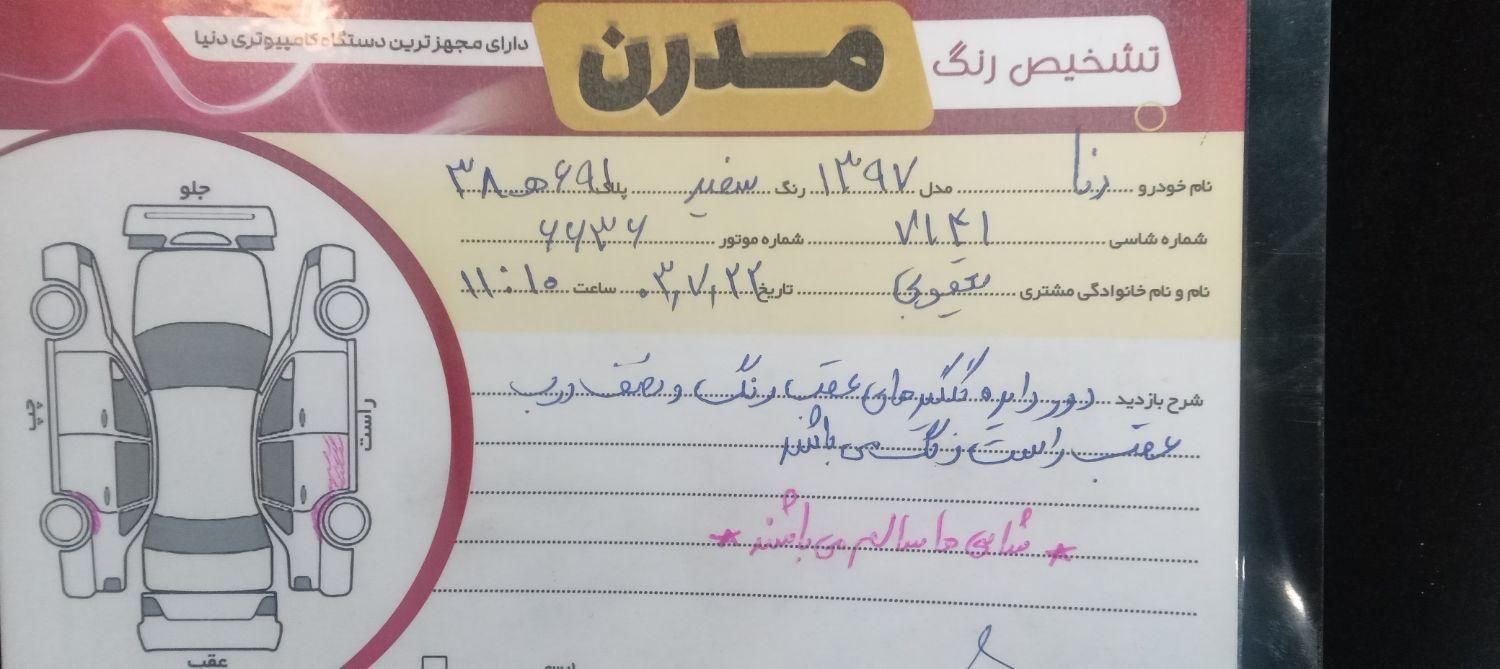 تشخیص رنگ مدرن دارای مجهزترین دستگاه کامپیوتری دنیا
نام خودرو رنا مدل ۱۳۹۷ رنگ سفید پلاک ۶۹۱ هـ ۳۸
شماره شاسی ۷۱۴۱ شماره موتور ۶۶۳۶
نام و نام خانوادگی مشتری یعقوبی تاریخ ۰۳,۷,۲۲ ساعت ۱۱:۱۵
شرح بازدید دور دایره گلگیرهای عقب رنگ و نصف درب
عقب راست رنگ می باشد
* شاسی ها سالم می باشند *
جلو
چپ
راست
عقب